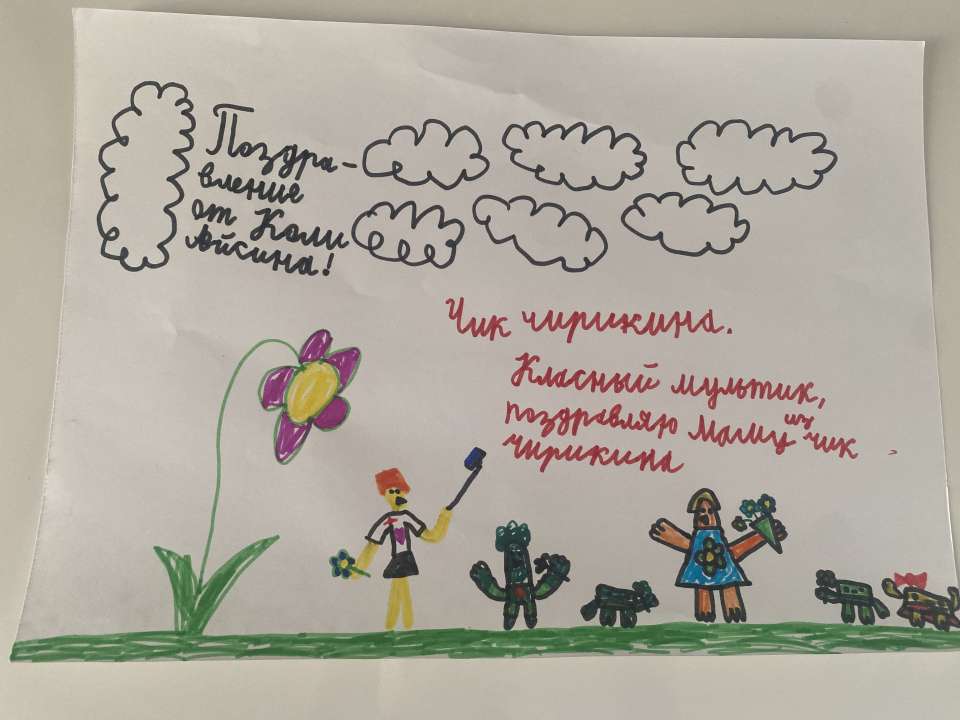 Поздра-
вление
от Коли
Айсина!
Чик чирикина.
Класный мультик,
поздравляю маму из чик
чирикина